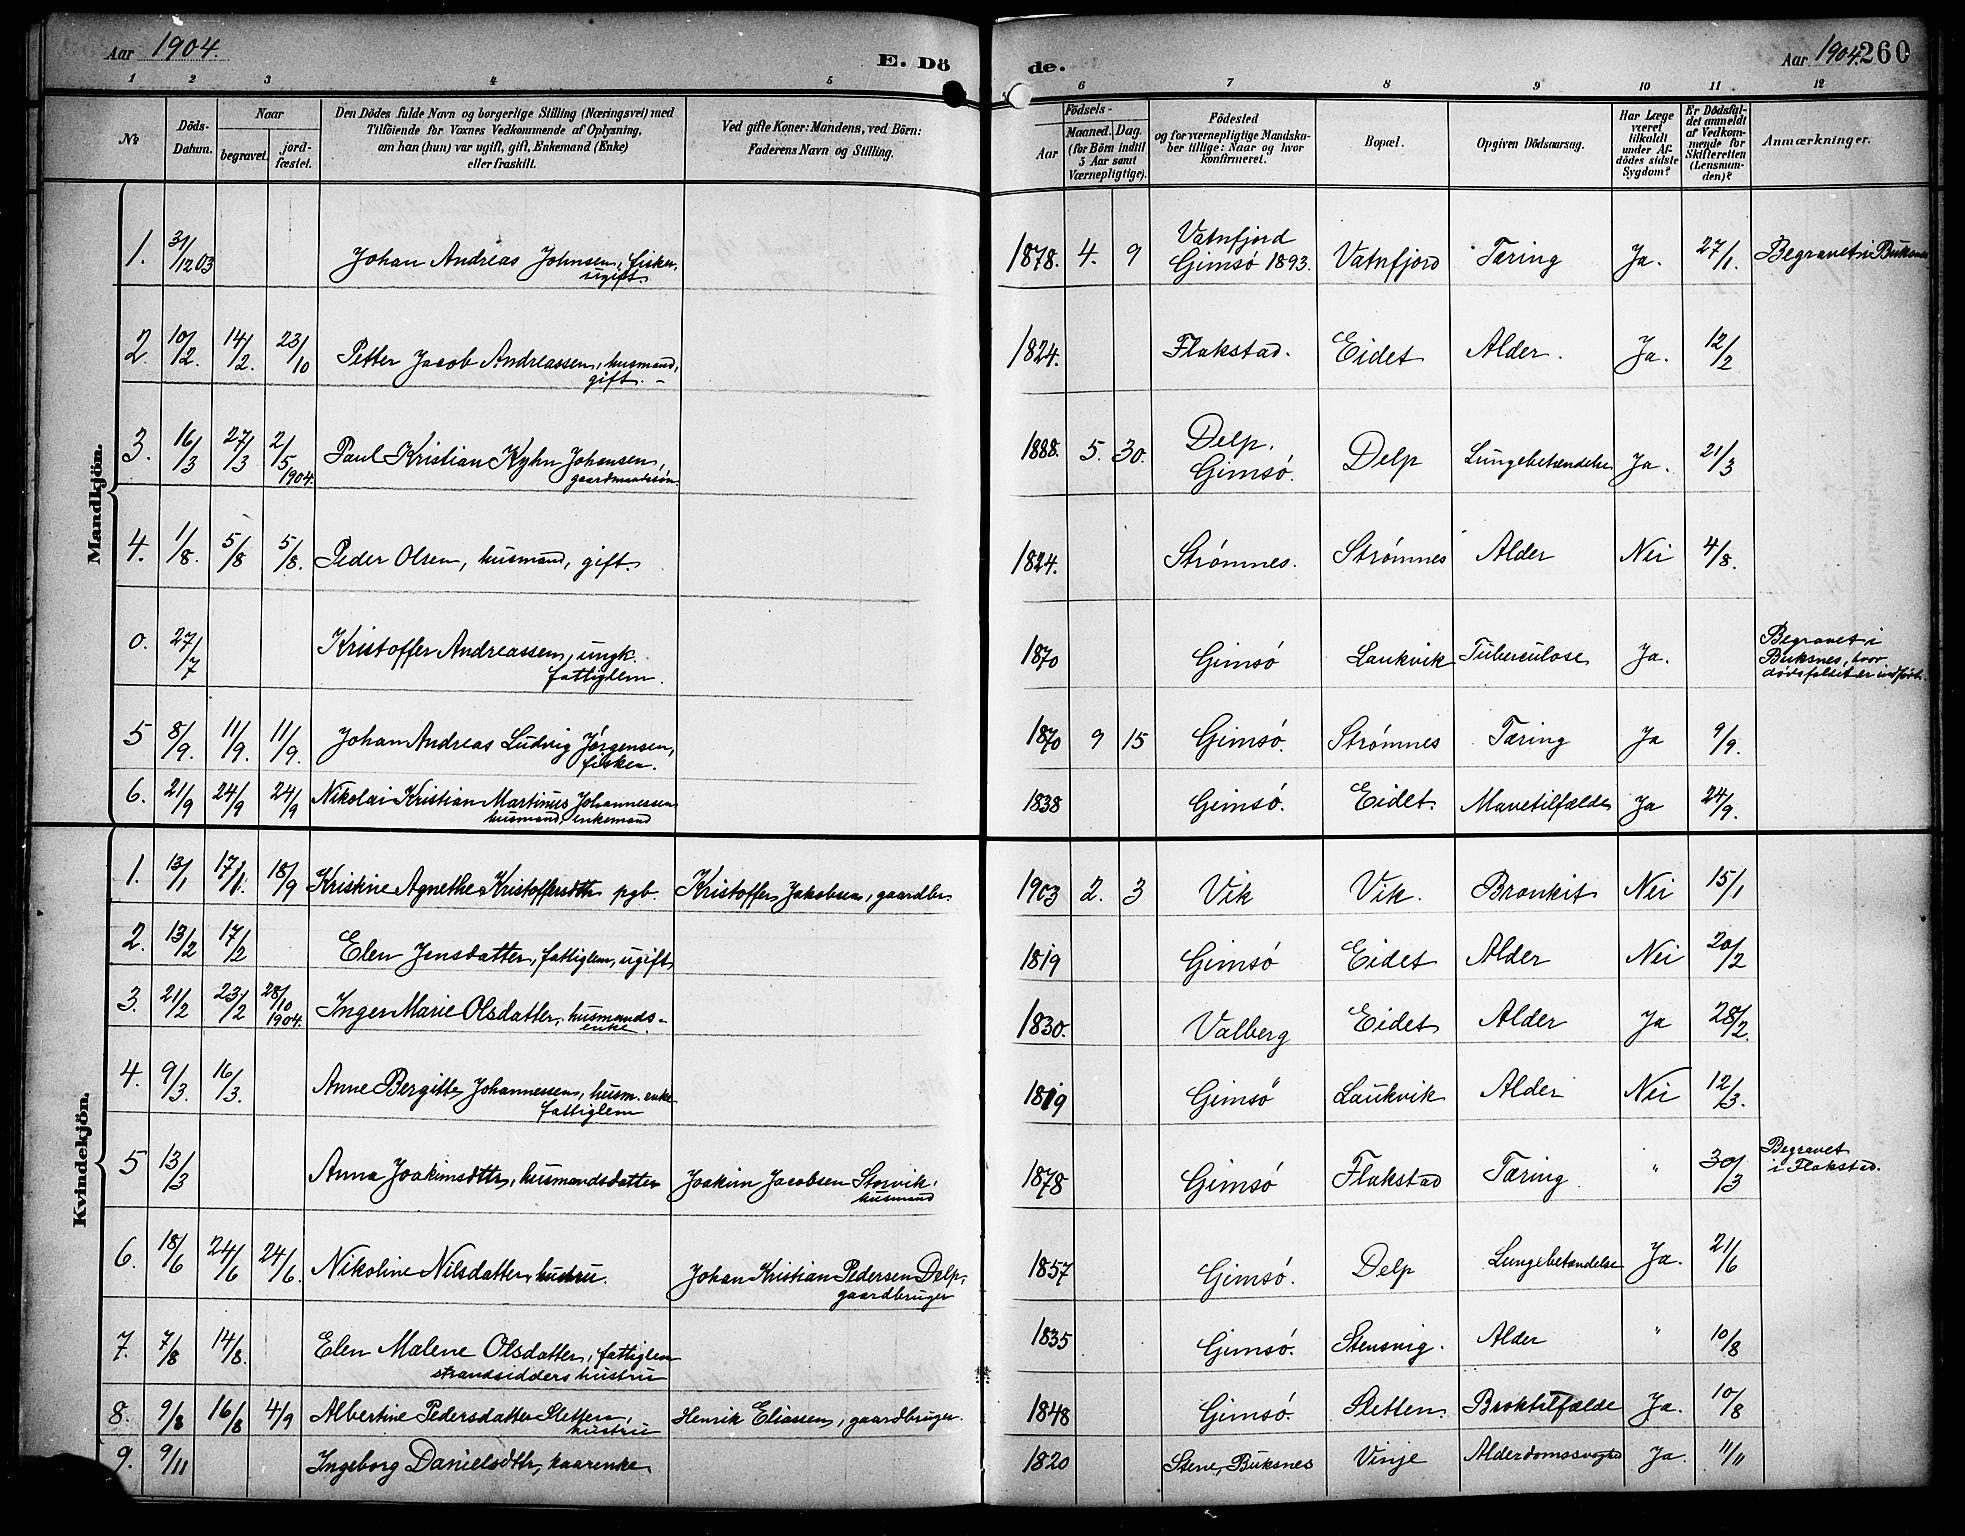 Aar 1904. E. Dö de. Aar 1904. 260
1 2 3 4 5 6 7 8 9 10 11 12
No. Döds-Datum. Naar begravet. jord-fæstet. Den Dödes fulde Navn og borgerlige Stilling (Næringsvei) med Tilföiende for Voxnes Vedkommende af Oplysning, om han (hun) var ugift, gift, Enkemand (Enke) eller fraskilt. Ved gifte Koner: Mandens, ved Börn: Faderens Navn og Stilling. Födsels- Aar Maaned. Dag. (for Börn indtil 5 Aar samt Værnepligtige). Födested og for værnepligtige Mandskaber tillige: Naar og hvor konfirmeret. Bopæl. Opgiven Dödsaarsag. Har Læge været tilkaldt under Afdödes sidste Sygdom? Er Dödsfaldet anmeldt af Vedkommende for Skifteretten (Lensmanden)? Anmærkninger.
Mandkjön.
1. 31/12 03 Johan Andreas Johnsen, fisker, ugift. 1878. 4. 9 Vatnfjord Gimsö 1893. Vatnfjord Tæring Ja. 27/1. Begravet i Buksnes
2. 10/2. 14/2. 23/10 Petter Jacob Andreassen, husmand, gift. 1824. Flakstad. Eidet Alder. Ja. 12/2
3. 16/3 27/3 2/5 1904. Paul Kristian Kyhn Johansen, gaardmandssön. 1888. 5. 30. Delp, Gimsö. Delp Lungebetændelse Ja. 21/3
4. 1/8. 5/8 5/8. Peder Olsen, husmand, gift. 1824. Strømnes. Strømnes Alder Nei 4/8.
0. 27/7 Kristoffer Andreassen, ungk. fattiglem. 1870 Gimsö Laukvik Tuberculose Ja. Begravet i Buksnes, hvor dødsfaldet er indført.
5 8/9. 11/9. 11/9. Johan Andreas Ludvig Jørgensen, fisker. 1870 9 15 Gimsö. Strømnes Tæring Ja 9/9.
6. 21/9 24/9 24/9 Nikolai Kristian Martinus Johannessen husmand, enkemand 1838 Gimsö. Eidet. Mavetilfælde Ja 24/9.
Kvindekjön.
1. 13/1 17/1. 18/9 Kristine Agnethe Kristoffersdtr pgb. Kristoffer Jakobsen, gaardbr. 1903 2. 3 Vik Vik. Bronkit Nei 15/1
2. 13/2 17/2 Elen Jensdatter, fattiglem, ugift 1819 Gimsö Eidet Alder Nei 20/2
3. 21/2 23/2 28/10 1904. Inger Marie Olsdatter, husmands-enke. 1830. Valberg Eidet Alder Ja 28/2.
4. 9/3. 16/3. Anne Bergitte Johannessen, husm. enke fattiglem 1819 Gimsö Laukvik Alder Nei 12/3.
5 13/3 Anna Joakimsdtr, husmandsdatter Joakim Jacobsen Storvik, husmand 1878 Gimsö Flakstad Tæring " 30/3 Begravet i Flakstad.
6. 18/6 24/6 24/6. Nikoline Nilsdatter, hustru. Johan Kristian Pedersen Delp, gaardbruger 1857 Gimsö. Delp Lungebetændelse Ja. 21/6
7. 7/8 14/8. Elen Malene Olsdatter, fattiglem strandsidders hustru 1835 Gimsö. Stensvig. Alder " 10/8
8. 9/8 16/8 4/9 Albertine Pedersdatter Sletten, hustru Henrik Eliassen, gaardbruger. 1848 Gimsö. Sletten. Broktilfælde Ja. 10/8
9. 9/11 Ingeborg Danielsdtr, kaarenke. 1820 Stene, Buksnes Vinje Alderdomssvaghed Ja. 11/11